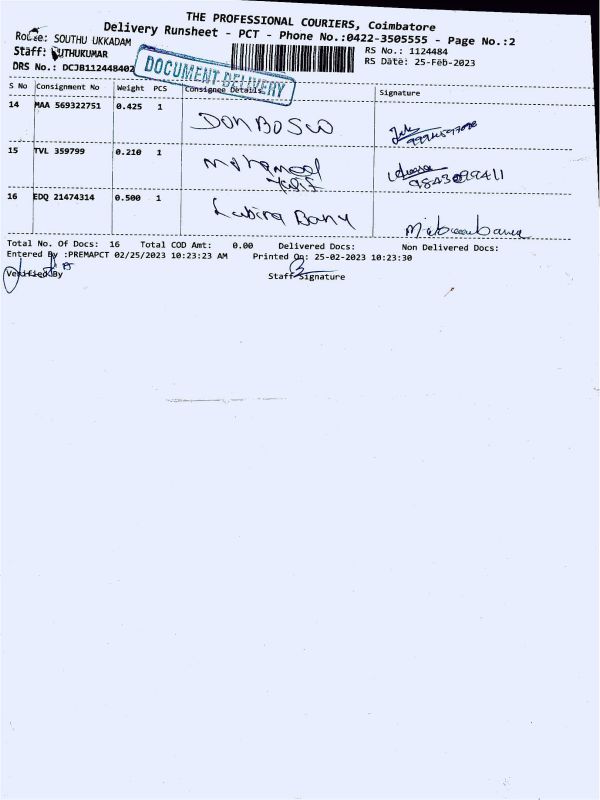 THE PROFESSIONAL COURIERS, Coimbatore
Delivery Runsheet - PCT - Phone No.:0422-3505555 - Page No.:2
Route: SOUTHU UKKADAM
RS No.: 1124484
Staff: MUTHUKUMAR
RS Date: 25-Feb-2023
DRS No.: DCJB112448402
DOCUMENT DELIVERY
S No Consignment No Weight PCS Consignee Details Signature
14 MAA 569322751 0.425 1 DON BOSCO
15 TVL 359799 0.210 1 Mohamed
16 EDQ 21474314 0.500 1 Labira Banu
Total No. Of Docs: 16 Total COD Amt: 0.00 Delivered Docs: Non Delivered Docs:
Entered By :PREMAPCT 02/25/2023 10:23:23 AM Printed On: 25-02-2023 10:23:30
Verified By Staff Signature